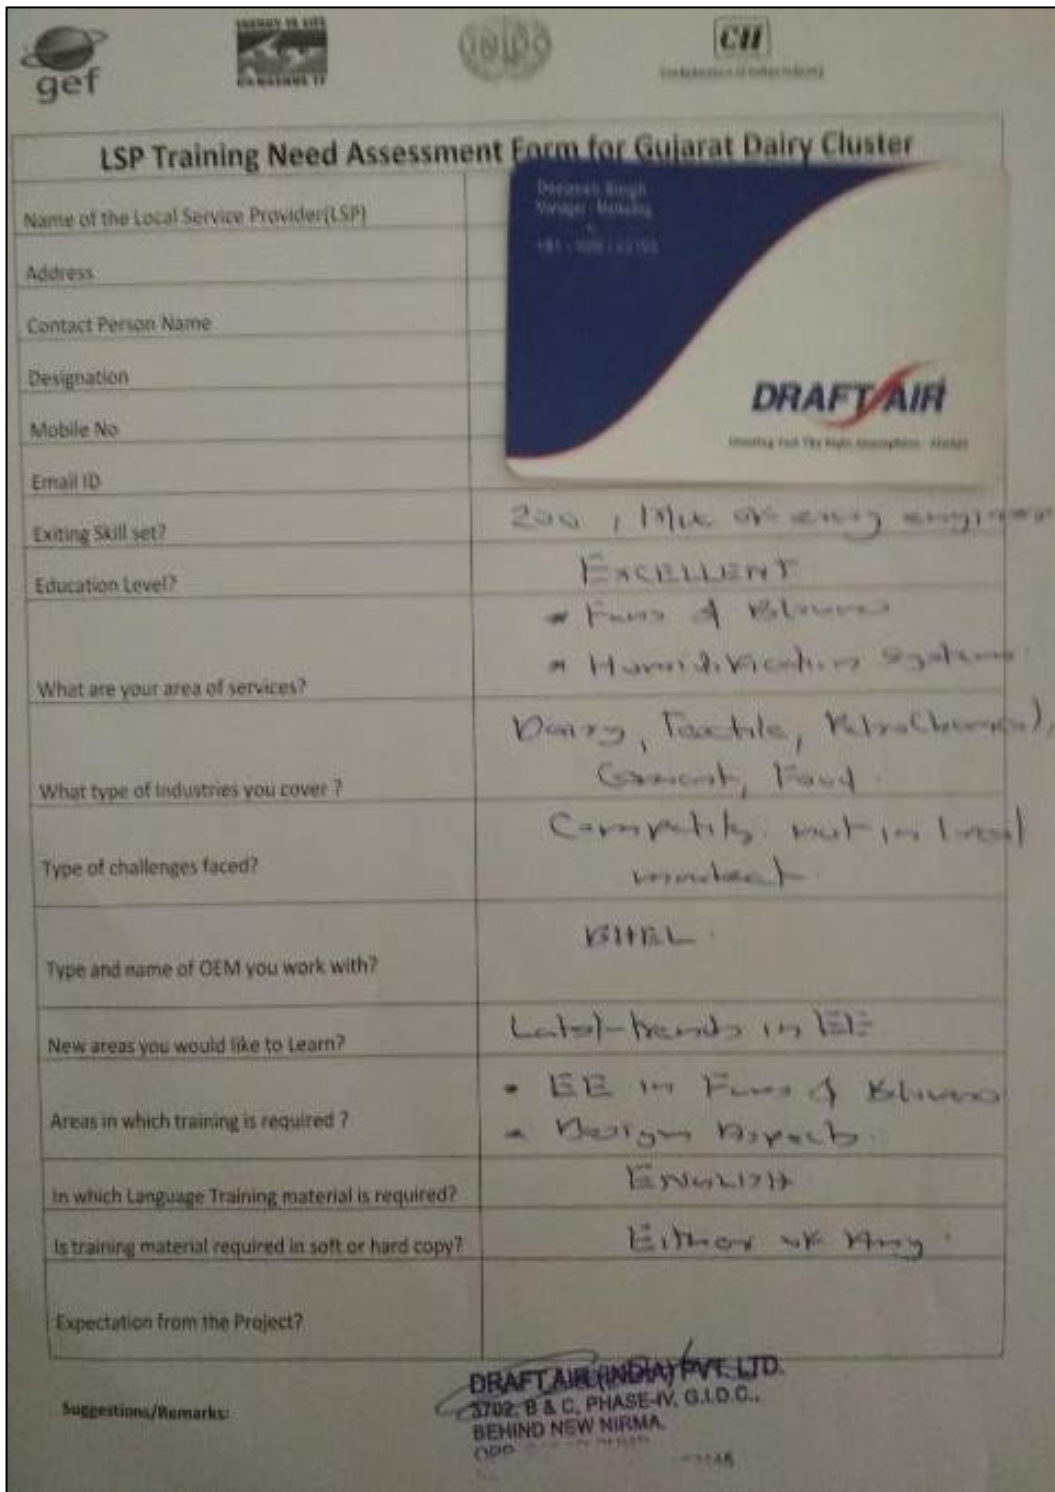 gef
CII
Confederation of Indian Industry
LSP Training Need Assessment Form for Gujarat Dairy Cluster
Name of the Local Service Provider(LSP)
Singh
Manager - Marketing
+91 -
DRAFT AIR
Address
Contact Person Name
Designation
Mobile No
Email ID
Exiting Skill set?
200 , Mix of engineer
Education Level?
EXCELLENT
What are your area of services?
Fans & Blowers
Humidification Systems
What type of Industries you cover ?
Dairy, Textile, PetroChemical,
Cement, Food.
Type of challenges faced?
in local
market
Type and name of OEM you work with?
BHEL.
New areas you would like to Learn?
Latest trends in EE
Areas in which training is required ?
• EE in Fans & Blowers
• Design Aspects.
In which Language Training material is required?
ENGLISH
Is training material required in soft or hard copy?
Either of Any.
Expectation from the Project?
Suggestions/Remarks:
DRAFT AIR (INDIA) PVT. LTD.
3702, B & C, PHASE-IV, G.I.D.C.,
BEHIND NEW NIRMA,
OPP.